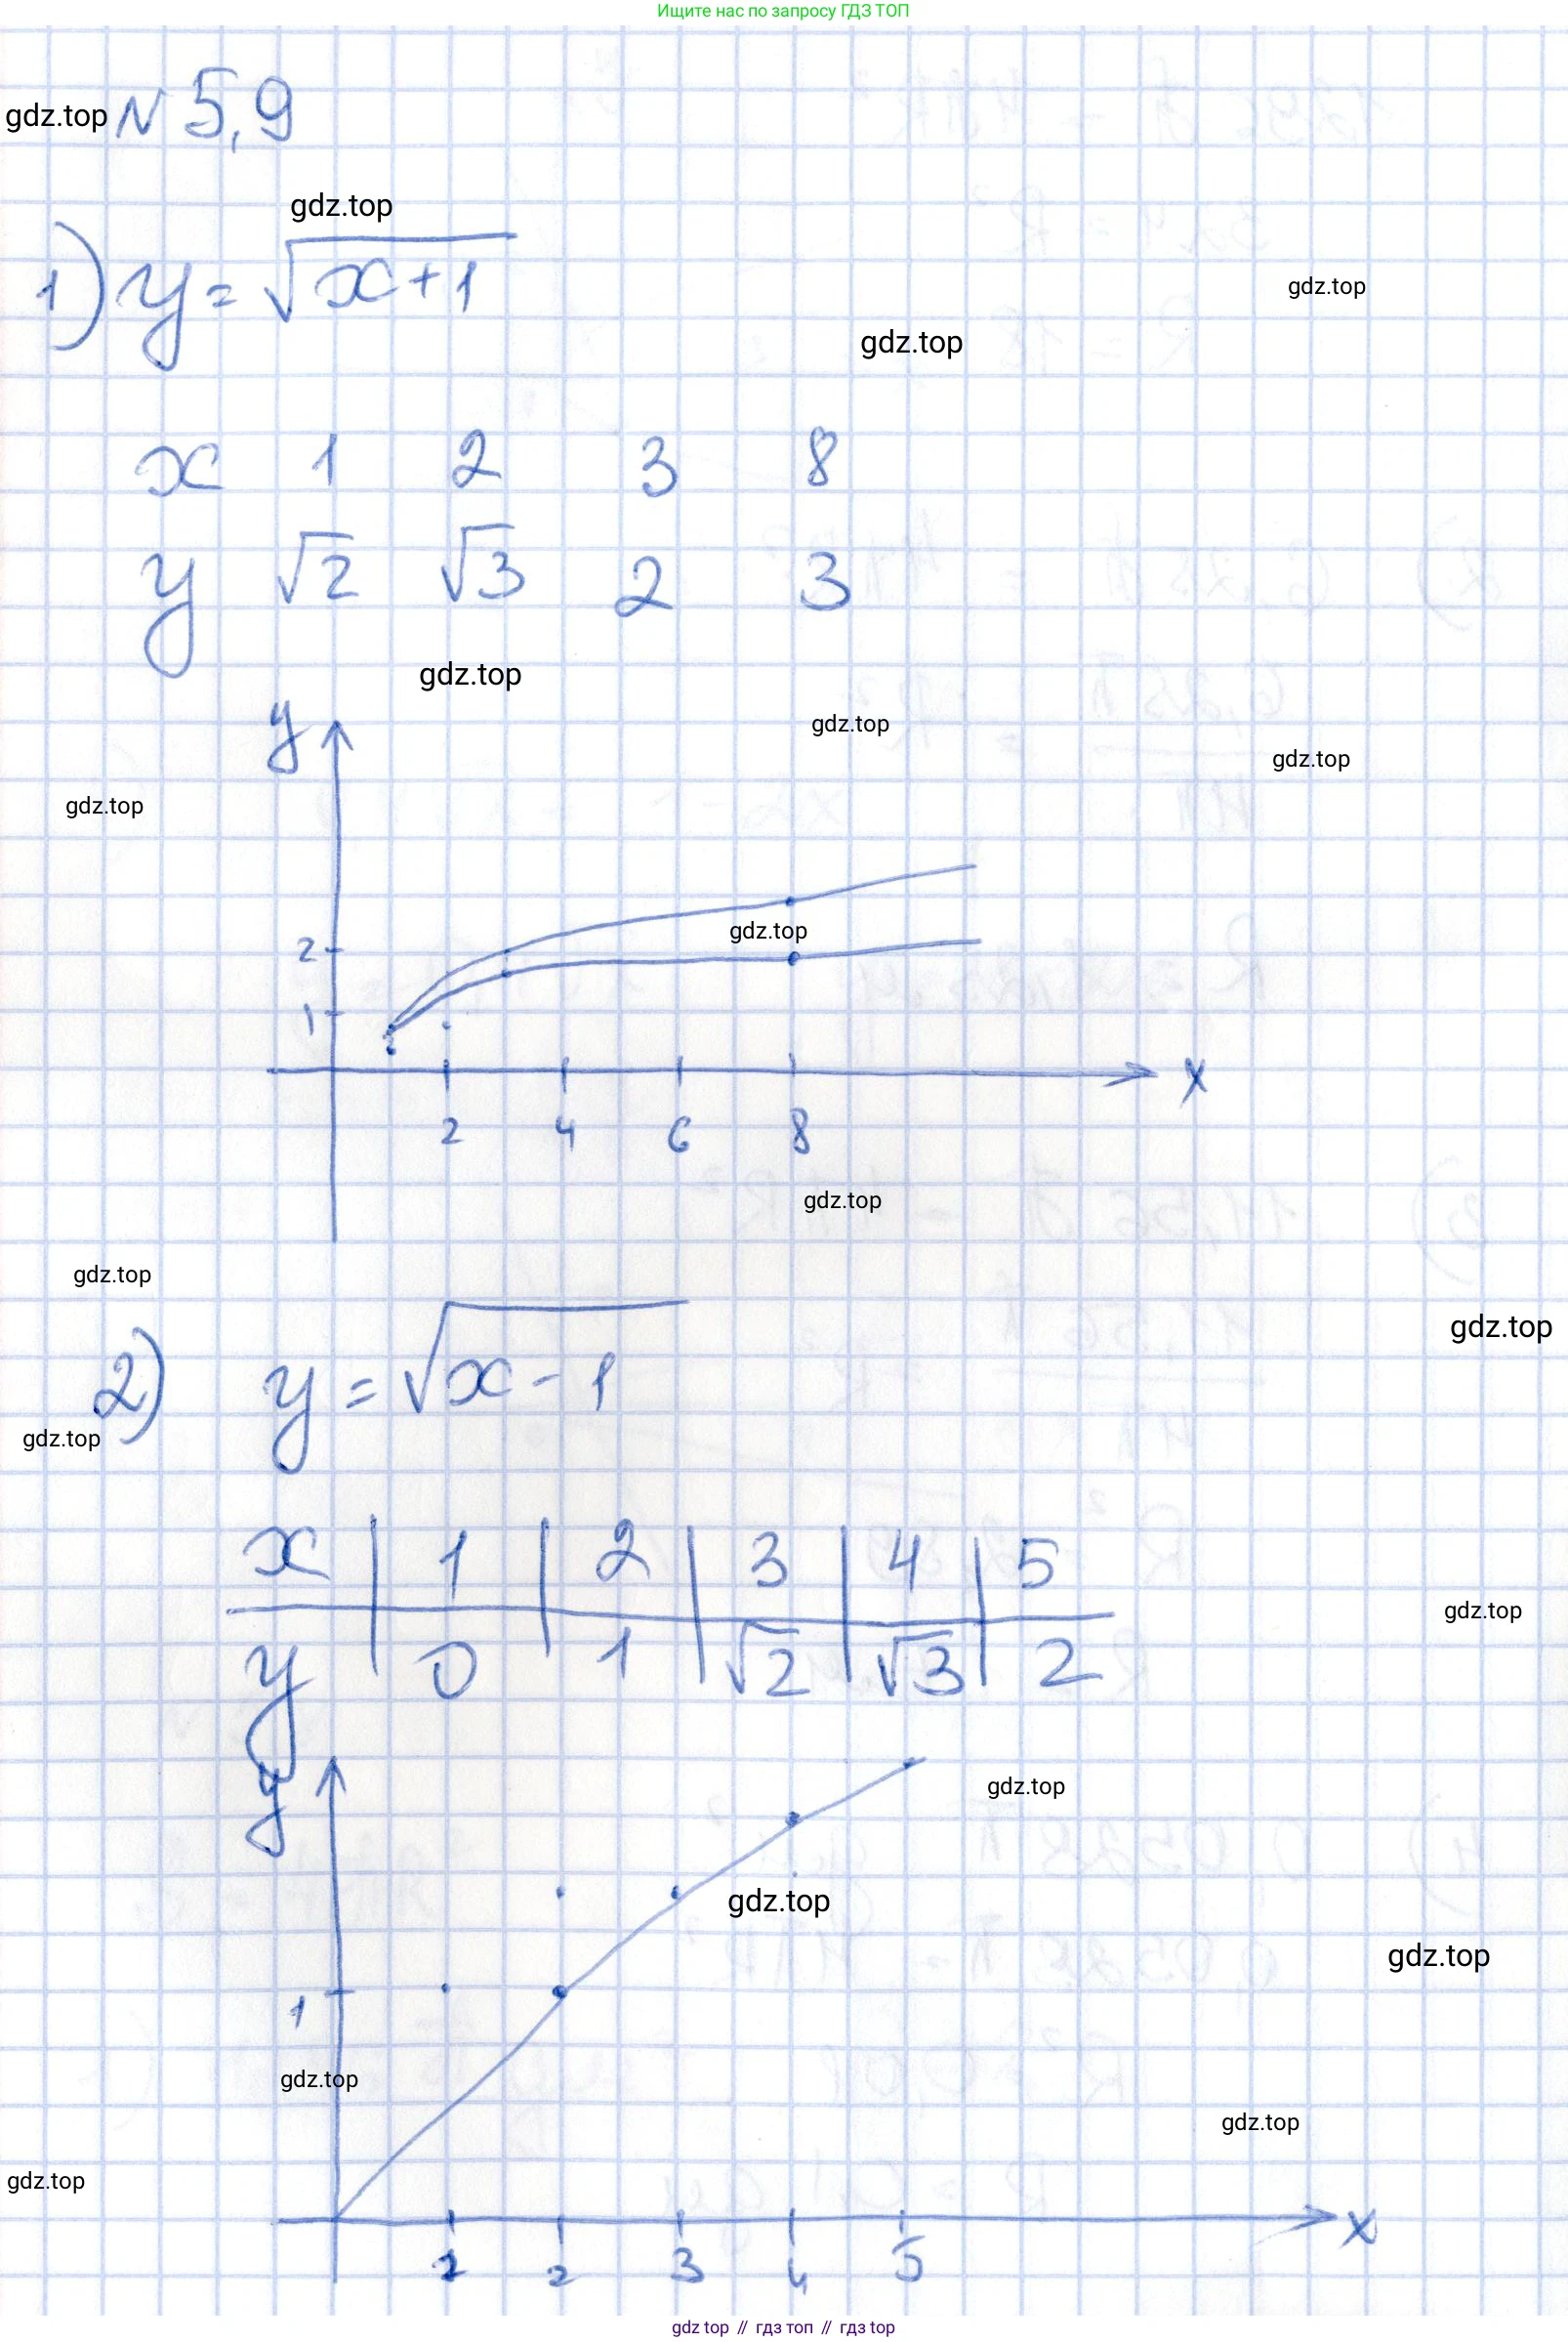 Ищите нас по запросу ГДЗ ТОП
gdz.top N 5,9
gdz.top
1) y = √(x+1)
gdz.top
gdz.top
x 1 2 3 8
y √2 √3 2 3
gdz.top
y
gdz.top
gdz.top
gdz.top
gdz.top
2
1
x
2 4 6 8
gdz.top
gdz.top
gdz.top
2) y = √(x-1)
gdz.top
x 1 2 3 4 5
gdz.top
y 0 1 √2 √3 2
y
gdz.top
gdz.top
gdz.top
1
gdz.top
gdz.top
gdz.top
x
1 2 3 4 5
gdz top // гдз топ // гдз top